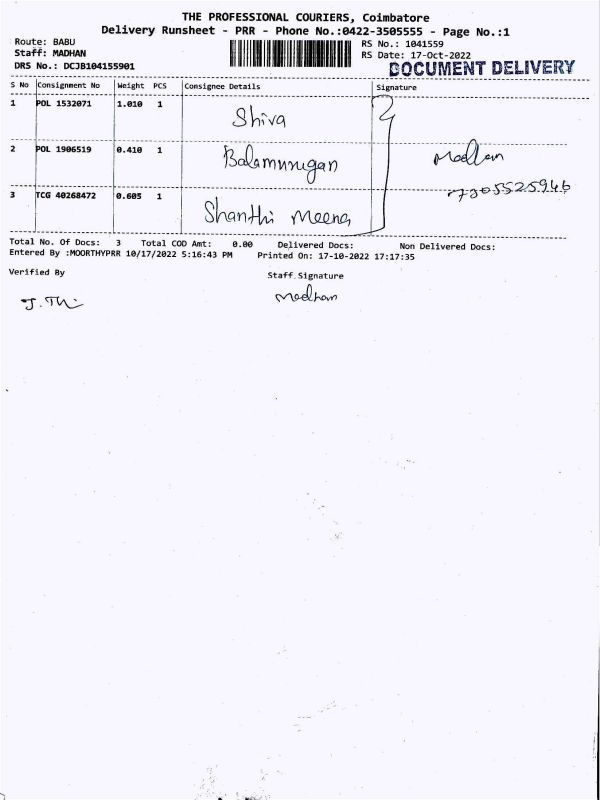 THE PROFESSIONAL COURIERS, Coimbatore
Delivery Runsheet - PRR - Phone No.:0422-3505555 - Page No.:1
Route: BABU
Staff: MADHAN
DRS No.: DCJB104155901
RS No.: 1041559
RS Date: 17-Oct-2022
DOCUMENT DELIVERY
S No Consignment No Weight PCS Consignee Details Signature
1 POL 1532071 1.010 1 Shiva
2 POL 1906519 0.410 1 Balamurugan Madhan
7305525946
3 TCG 40268472 0.605 1 Shanthi Meena
Total No. Of Docs: 3 Total COD Amt: 0.00 Delivered Docs: Non Delivered Docs:
Entered By :MOORTHYPRR 10/17/2022 5:16:43 PM Printed On: 17-10-2022 17:17:35
Verified By Staff Signature
Madhan